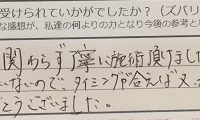 受けられていかがでしたか？（ズバリ
な感想が、私達の何よりの力となり今後の参考と
関わらず丁寧に施術頂けまし
いないので、タイミングが合えば又
とうございました。